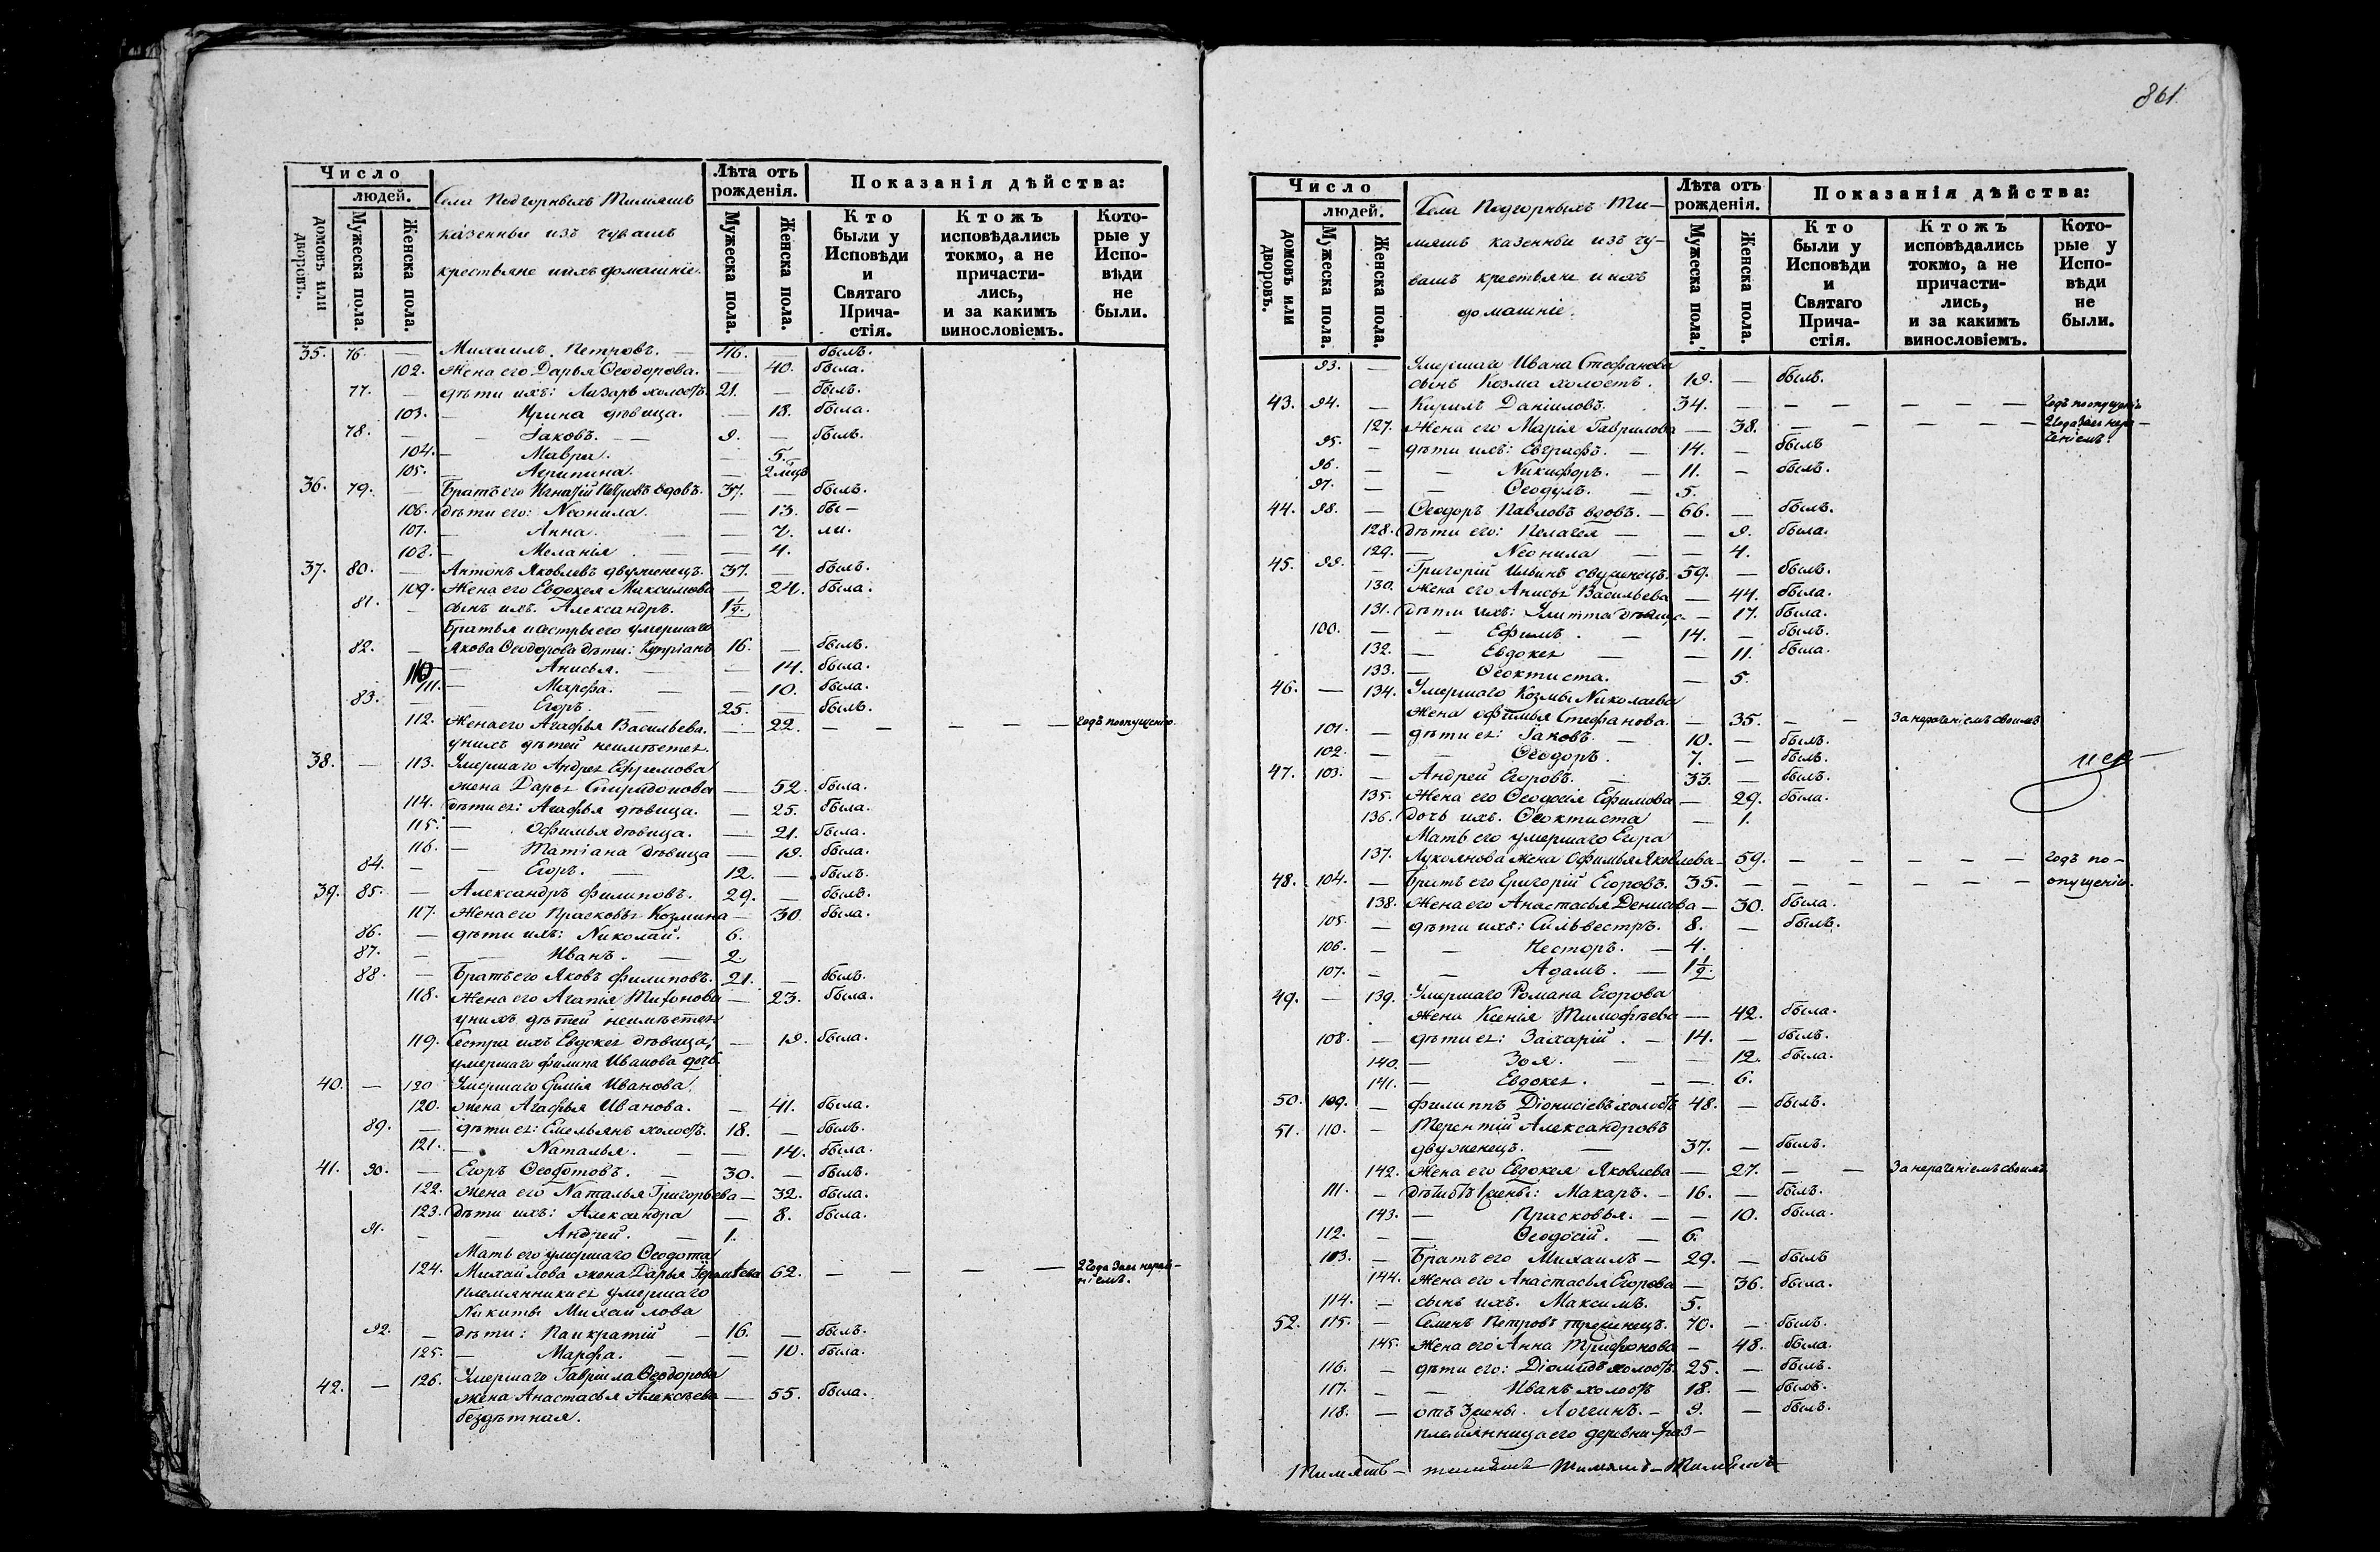 861.
Число
людей.
домовъ или дворовъ.
Мужеска пола.
Женска пола.
Села Подгорныхъ Тимяшъ
казенныи изъ чувашъ
крестьяне ихъ домашніе.
Лѣта отъ рожденія.
Мужеска пола.
Женска пола.
Показанія дѣйства:
Кто были у Исповѣди и Святаго Прича-стія.
Ктожъ исповѣдались токмо, а не причасти-лись, и за какимъ винословіемъ.
Кото-рые у Испо-вѣди не были.
35. 76. — Михаилъ Петровъ. — 46. — былъ.
102. Жена его Дарья Ѳеодорова. — 40. была.
77. — дѣти ихъ: Лазарь холостъ. 21. — былъ.
103. — Ирина дѣвица. — 18. была.
78. — — Іаковъ. — — 9. — былъ.
104. — Мавра. — 5.
105. — Агрипина. — 2 мцъ
36. 79. — Братъ его Игнатій Петровъ вдовъ. 37. — былъ.
106. дѣти его: Неонила. — 13. бы-
107. — Анна. — — 7. ли.
108. — Меланія — — 4.
37. 80. — Антонъ Яковлевъ двуженецъ. 37. — былъ.
109. Жена его Евдокея Максимова — 24. была.
81. — сынъ ихъ. Александръ. 1½.
Братья и сестры его умершаго
82. — Якова Ѳеодорова дѣти: Купріанъ 16. — былъ.
110 — Анисья. — — 14. была.
111. — Марфа. — — 10. была.
83. — — Егоръ. — 25. — былъ.
112. Жена его Агафья Васильева. — 22. — — — — годъ по опущенію.
у нихъ дѣтей неимѣетея.
38. — 113. Умершаго Андрея Ефремова
жена Дарья Спиридонова — 52. была.
114. дѣти ея: Агафья дѣвица. — 25. была.
115. — Офимья дѣвица. — 21. была.
116. — Татіана дѣвица — 19. была.
84. — — Егоръ. — 12. — былъ.
39. 85. — Александръ Филиповъ. 29. — былъ.
117. Жена его Прасковья Козмина — 30. была.
86. — дѣти ихъ: Николай. 6.
87. — — Иванъ. — 2.
88. — Братъ его Яковъ Филиповъ. 21. — былъ.
118. Жена его Агапія Тихонова — 23. была.
у нихъ дѣтей неимѣетея
119. Сестра ихъ Евдокея дѣвица, — 19. была.
умершаго Филипа Иванова дочь.
40. — 120 Умершаго Емія Иванова
120. жена Агафья Иванова. — 41. была.
89. — дѣти ея: Емельянъ холостъ. 18. — былъ.
121. — Наталья. — — 14. была.
41. 90. — Егоръ Ѳеодотовъ. — 30. — былъ.
122. Жена его Наталья Григорьева — 32. была.
123. дѣти ихъ: Александра — 8. была.
91. — — Андрей. — 1.
Мать его умершаго Ѳеодота
124. Михайлова жена Дарья 62. — — — — 2 года за ея нераче-ніемъ.
племянники ея умершаго
Никиты Михайлова
92. — дѣти: Панкратій — 16. — былъ.
125. — Марфа. — — 10. была.
42. — 126. Умершаго Гавріила Ѳеодорова
жена Анастасья Алексѣева — 55. была.
бездѣтная.
Число
людей.
домовъ или дворовъ.
Мужеска пола.
Женска пола.
Села Подгорныхъ Ти-
мяшъ казенныи изъ чу-
вашъ крестьяне и ихъ
домашніе.
Лѣта отъ рожденія.
Мужеска пола.
Женска пола.
Показанія дѣйства:
Кто были у Исповѣди и Святаго Прича-стія.
Ктожъ исповѣдались токмо, а не причасти-лись, и за какимъ винословіемъ.
Кото-рые у Испо-вѣди не были.
93. — Умершаго Ивана Стефанова
сынъ Козма холостъ. 19. — былъ.
43. 94. — Кирилъ Даниловъ. 34. — — — — — — годъ по опущенію
127. Жена его Марія Гаврилова — 38. — — — — — 2 года за ея нера-
95. — дѣти ихъ: Евграфъ. — 14. — былъ ченіемъ.
96. — — Никифоръ. — 11. — былъ.
97. — — Ѳеодулъ. — 5.
44. 98. — Ѳеодоръ Павловъ вдовъ. — 66. — былъ.
128. дѣти его: Пелагея — — 9. была.
129. — Неонила — — 4.
45. 99. — Григорій Ильинъ двуженецъ. 59. — былъ.
130. Жена его Анисья Васильева — 44. была.
131. дѣти ихъ: Улитта дѣвица — 17. была.
100. — — Ефимъ. — 14. — былъ.
132. — Евдокея — — 11. была.
133. — Ѳеоктиста. — 5.
46. — 134. Умершаго Козмы Николаева
жена Офимья Стефанова. — 35. — — За нераченіемъ своимъ
101. — дѣти ея: Іаковъ. — 10. — былъ.
102. — — Ѳеодоръ. 7. — былъ.
47. 103. — Андрей Егоровъ. — 33. — былъ.
135. Жена его Ѳеодосія Ефимова — 29. была.
136. дочь ихъ. Ѳеоктиста — 1.
Мать его умершаго Егора
137. Лукоянова жена Офимья Яковлева — 59. — — — — — годъ по-
48. 104. — Братъ его Григорій Егоровъ. 35. — — — — — — опущенію.
138. Жена его Анастасья Денисова — 30. была.
105. — дѣти ихъ: Сильвестръ. 8. — былъ.
106. — — Несторъ. — 4.
107. — — Адамъ. — 1½.
49. — 139. Умершаго Романа Егорова
жена Ксенія Тимофѣева — 42. была.
108. — дѣти ея: Захарій. — 14. — былъ.
140. — Зоя. — — 12. была.
141. — Евдокея. — — 6.
50. 109. — Филиппъ Діонисіевъ холостъ 48. — былъ.
51. 110. — Терентій Александровъ
двуженецъ. — 37. — былъ.
142. Жена его Евдокея Яковлева — 27. — — За нераченіемъ своимъ
111. — дѣти отъ 1 жены: Макаръ. — 16. — былъ.
143. — Прасковья. — — 10. была.
112. — — Ѳеодосій. — 6.
113. — Братъ его Михаилъ — 29. — былъ
144. Жена его Анастасья Егорова — 36. была.
114. — сынъ ихъ. Максимъ. 5.
52. 115. — Семенъ Петровъ троженецъ. 70. — былъ.
145. Жена его Анна Трифонова — 48. была.
116. — дѣти его: Діомидъ холостъ. 25. — былъ.
117. — — Иванъ холостъ 18. — былъ.
118. — отъ 3 жены. Логгинъ. — 9. — былъ.
племянница его деревни
Тимяшъ —